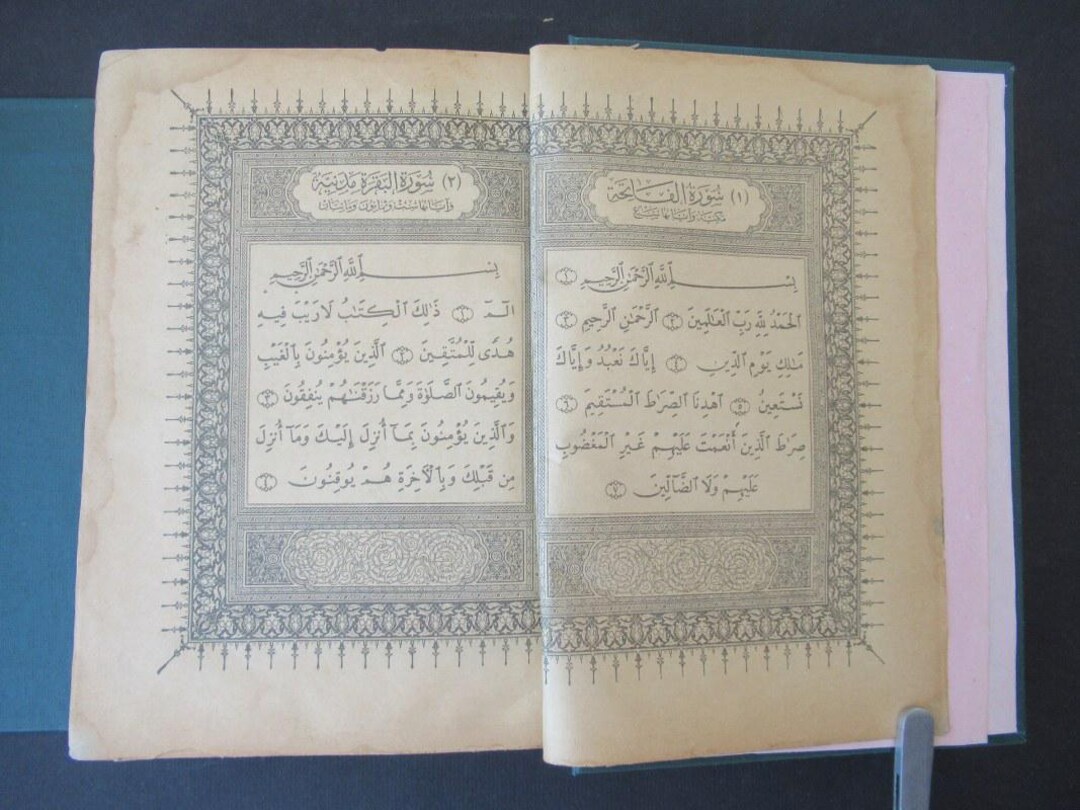 (١) سُورَةُ الفَاتِحَة
مكيّة وآياتها سبع
بِسْمِ ٱللَّهِ ٱلرَّحْمَٰنِ ٱلرَّحِيمِ ١
ٱلْحَمْدُ لِلَّهِ رَبِّ ٱلْعَٰلَمِينَ ٢ ٱلرَّحْمَٰنِ ٱلرَّحِيمِ ٣
مَٰلِكِ يَوْمِ ٱلدِّينِ ٤ إِيَّاكَ نَعْبُدُ وَإِيَّاكَ
نَسْتَعِينُ ٥ ٱهْدِنَا ٱلصِّرَٰطَ ٱلْمُسْتَقِيمَ ٦
صِرَٰطَ ٱلَّذِينَ أَنْعَمْتَ عَلَيْهِمْ غَيْرِ ٱلْمَغْضُوبِ
عَلَيْهِمْ وَلَا ٱلضَّآلِّينَ ٧
(٢) سُورَةُ البَقَرَةِ مَدَنيَّة
وآياتها ست وثمانون ومائتان
بِسْمِ ٱللَّهِ ٱلرَّحْمَٰنِ ٱلرَّحِيمِ
الٓمٓ ١ ذَٰلِكَ ٱلْكِتَٰبُ لَا رَيْبَ فِيهِ
هُدًى لِّلْمُتَّقِينَ ٢ ٱلَّذِينَ يُؤْمِنُونَ بِٱلْغَيْبِ
وَيُقِيمُونَ ٱلصَّلَوٰةَ وَمِمَّا رَزَقْنَٰهُمْ يُنفِقُونَ ٣
وَٱلَّذِينَ يُؤْمِنُونَ بِمَآ أُنزِلَ إِلَيْكَ وَمَآ أُنزِلَ
مِن قَبْلِكَ وَبِٱلْءَاخِرَةِ هُمْ يُوقِنُونَ ٤